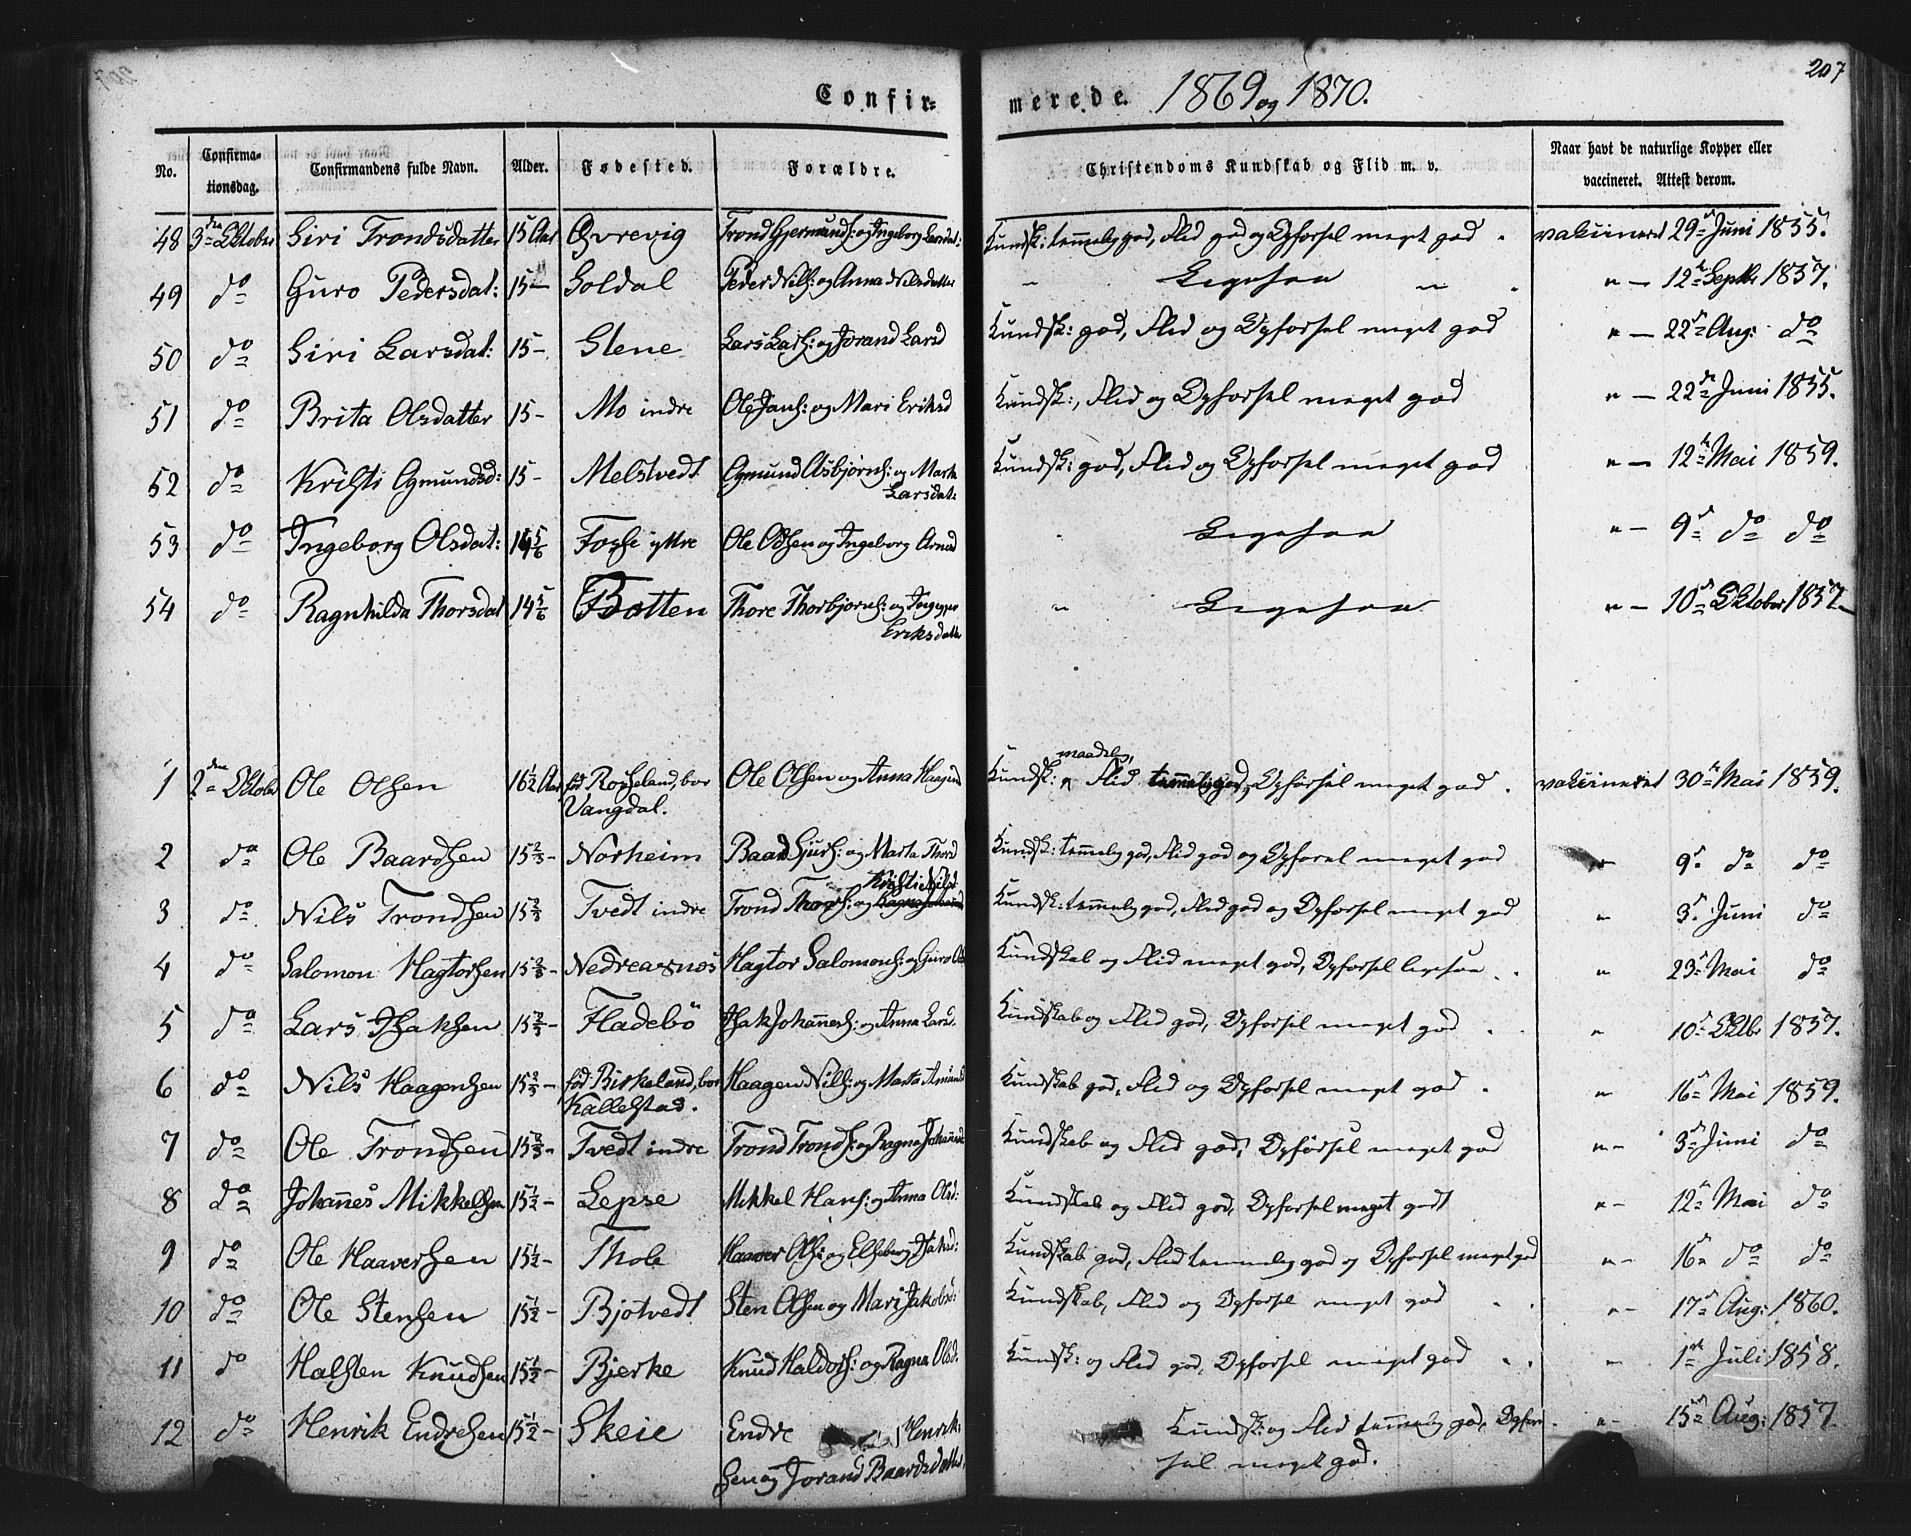 207
Confir-
merede. 1869 og 1870.
No. Confirmationsdag. Confirmandens fulde Navn. Alder. Fødested. Forældre. Christendoms Kundskab og Flid m. v. Naar havt de naturlige Kopper eller vaccineret. Attest derom.
48 3die Oktober Siri Trondsdatter 15 Aar Øvrevig Trond Gjermunds: og Ingeborg Larsdat: Kundsk: temmelig god, Flid god og Opførsel meget god. vakcineret 29de Juni 1855.
49 do Guro Pedersdat: 15 — Soldal Peder Nils: og Anna Nilsdatter " Ligesaa " " — 12te Septbr 1857.
50 do Siri Larsdat: 15 — Stene Lars Lars: og Jorand Larsd Kundsk: god, Flid og Opførsel meget god " — 22de Aug: do
51 do Brita Olsdatter 15 — Mo indre Ole Jans: og Mari Eriksd Kundsk:, Flid og Opførsel meget god " — 22de Juni 1855.
52 do Kristi Ogmundsd: 15 — Melstvedt Ogmund Asbjørns: og Marta
Larsdat: Kundsk: god, Flid og Opførsel meget god " — 12te Mai 1859.
53 do Ingeborg Olsdat: 14 5/6 Fosse ytre Ole Olssen og Ingeborg Arnd Ligesaa " — 9de do do
54 do Ragnhilda Thorsdat 14 5/6 Botten Thore Thorbjørns: og
Eriksdatter " Ligesaa " — 10de Oktober 1857
1 2den Oktober Ole Olsen 16 1/2 Aar fød Rosseland, bor
Vangdal. Ole Olsen og Anna Haagens Kundsk: maadelig, Flid temmelig god, Opførsel meget god. vakcineret 30te Mai 1859.
2 do Ole Baardsen 15 2/3 — Norheim Baard Sjurs: og Marta Thord Kundsk: temmelig god, Flid god og Opførsel meget god " 9de do do
3 do Nils Trondsen 15 2/3 Tvedt indre Trond Thors: og Kristi Nilsd Kundsk: temmelig god, Flid god og Opførsel meget god " 3die Juni do
4 do Salomon Hagtorsen 15 2/3 — Nedreaasnes Hagtor Salomons: og Guro Ols Kundskab og Flid meget god, Opførsel ligesaa. " 23de Mai do
5 do Lars Isaksen 15 2/3 — Fladebö Isak Johannes: og Anna Larsd. Kundskab og Flid god, Opførsel meget god. " 10de Oktbr 1857.
6 do Nils Haagensen 15 2/3 — fød Birkeland, bor
Kallestad. Haagen Nils: og Marta Amunds Kundskab god, Flid og Opførsel meget god. " 16de Mai 1859.
7 do Ole Trondsen 15 2/3 — Tvedt indre Trond Tronds: og Ragna Johannesd Kundskab og Flid god, Opførsel meget god " — 3die Juni do
8 do Johannes Mikkelsen 15 1/2 — Lepse Mikkel Hans: og Anna Olsd: Kundskab og Flid god, Opførsel meget godt " — 12te Mai do
9 do Ole Haaversen 15 1/2 — Thole Haaver Ols: og Elseberg Isaksd: Kundskab god, Flid temmelig god og Opførsel meget god " — 16de do do
10 do Ole Stensen 15 1/2 — Bjotvedt Sten Olsen og Mari Jakobsd: Kundskab, Flid og Opførsel meget god " — 17de Aug: 1860.
11 do Halsten Knudsen 15 1/2 — Bjerke Knud Haldors: og Ragna Olsd. Kundsk: og Flid god, Opførsel meget god " 1ste Juli 1858.
12 do Henrik Endresen 15 1/2 — Skeie Endre Henrik-
sen og Jorand Baardsdatter Kundsk: og Flid temmelig god, Opfør-
sel meget god. " — 15de Aug: 1857.